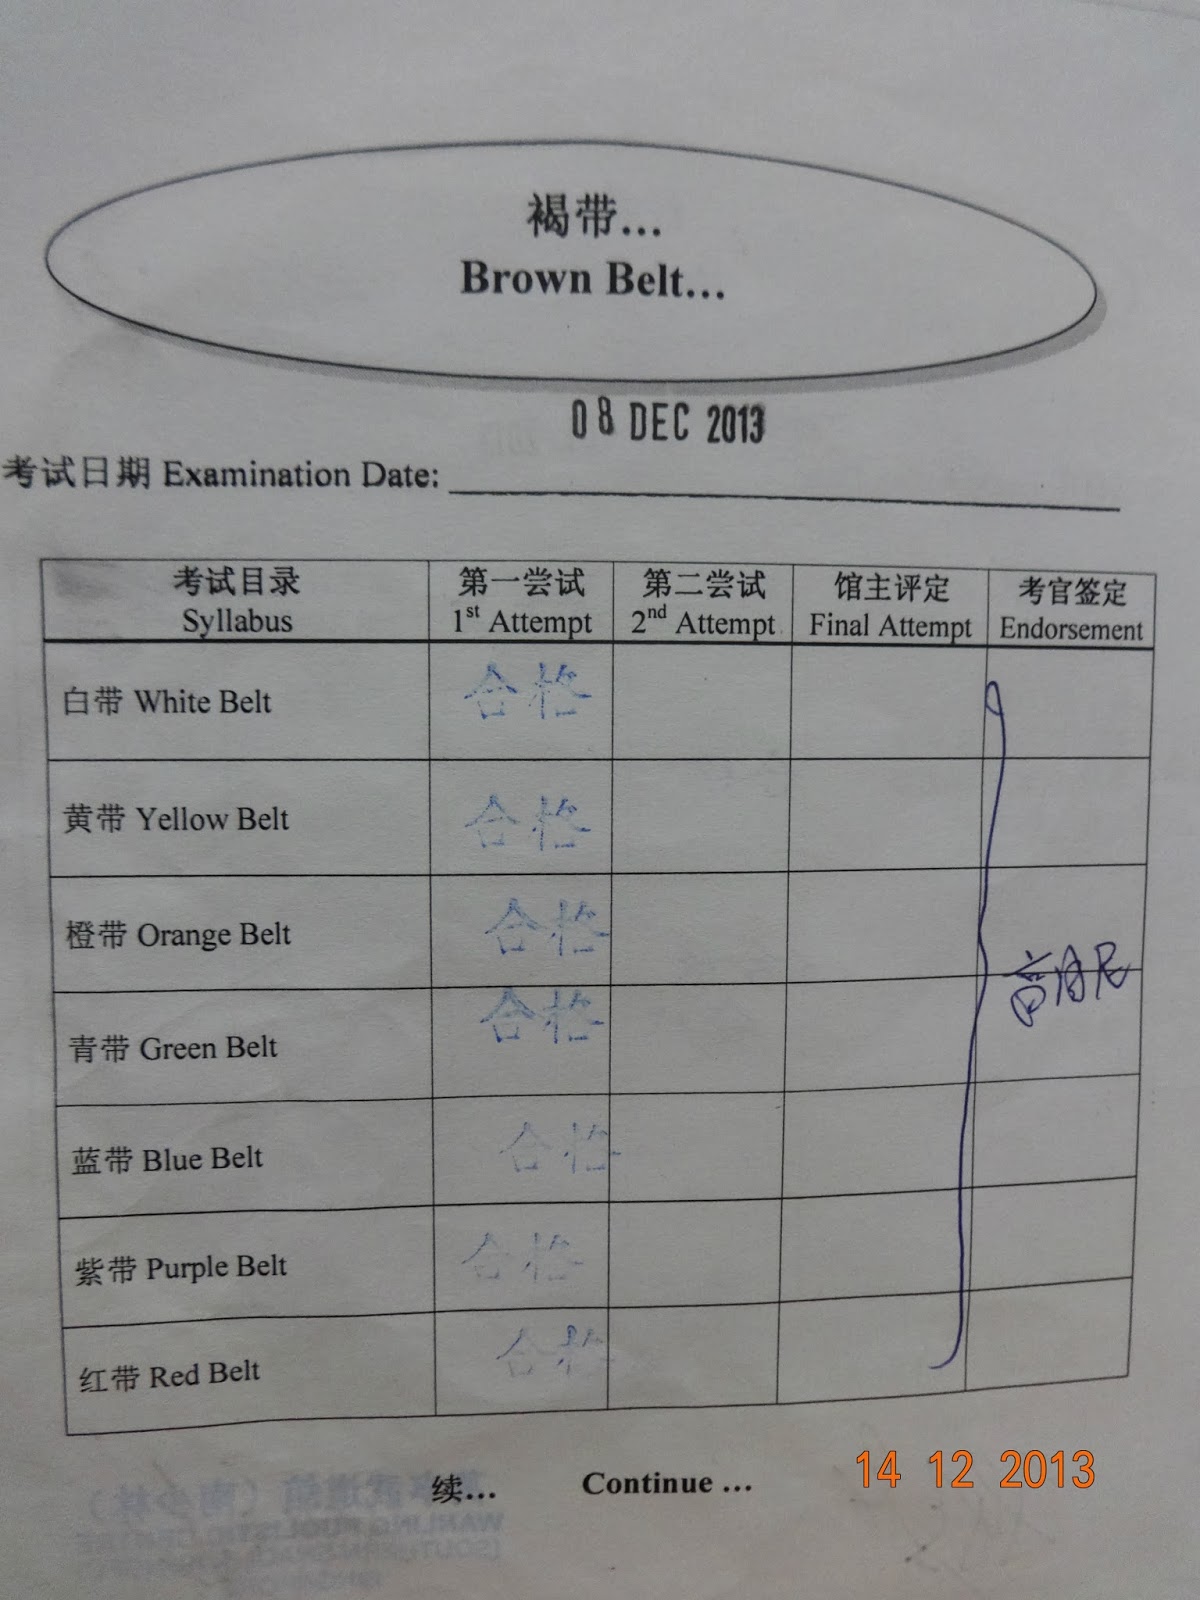 褐带...
Brown Belt...
08 DEC 2013
考试日期 Examination Date:
考试目录 第一尝试 第二尝试 馆主评定 考官签定
Syllabus 1st Attempt 2nd Attempt Final Attempt Endorsement
白带 White Belt 合格
黄带 Yellow Belt 合格
橙带 Orange Belt 合格
青带 Green Belt 合格
蓝带 Blue Belt 合格
紫带 Purple Belt 合格
红带 Red Belt 合格
续... Continue ...
14 12 2013